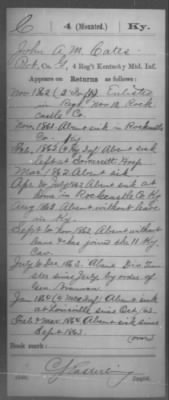 C | 4 (Mounted.) | Ky.
John A. M. Cates
Pvt, Co. G, 4 Reg't Kentucky Mtd. Inf.
Appears on
Returns as follows:
Nov 1862 (2 Inf) Enlisted
in Regt Nov 12 Rock
castle Co.
Nov, 1861 Absent sick in Rockcastle
Co. Ky
Feb, 1862 Absent sick
left at Somerset Hosp
Mar 1862 Absent sick
Apr to July 1862 Absent sick at
home in Rockcastle Co Ky
Aug 1862 Absent without leave
in Ky
Sept to Nov 1862 Absent without
leave & has joined the 11 Ky.
Cav.
July to Dec 1863. Absent Div. Team
ster since July by order of
Gen Brannan
Jan 1864 (4 Mtd Inf) Absent sick
at Louisville since Oct, 63
Feb & Mar 1864 Absent sick since
Sept 1863.
(over)
Book mark:
Copyist.